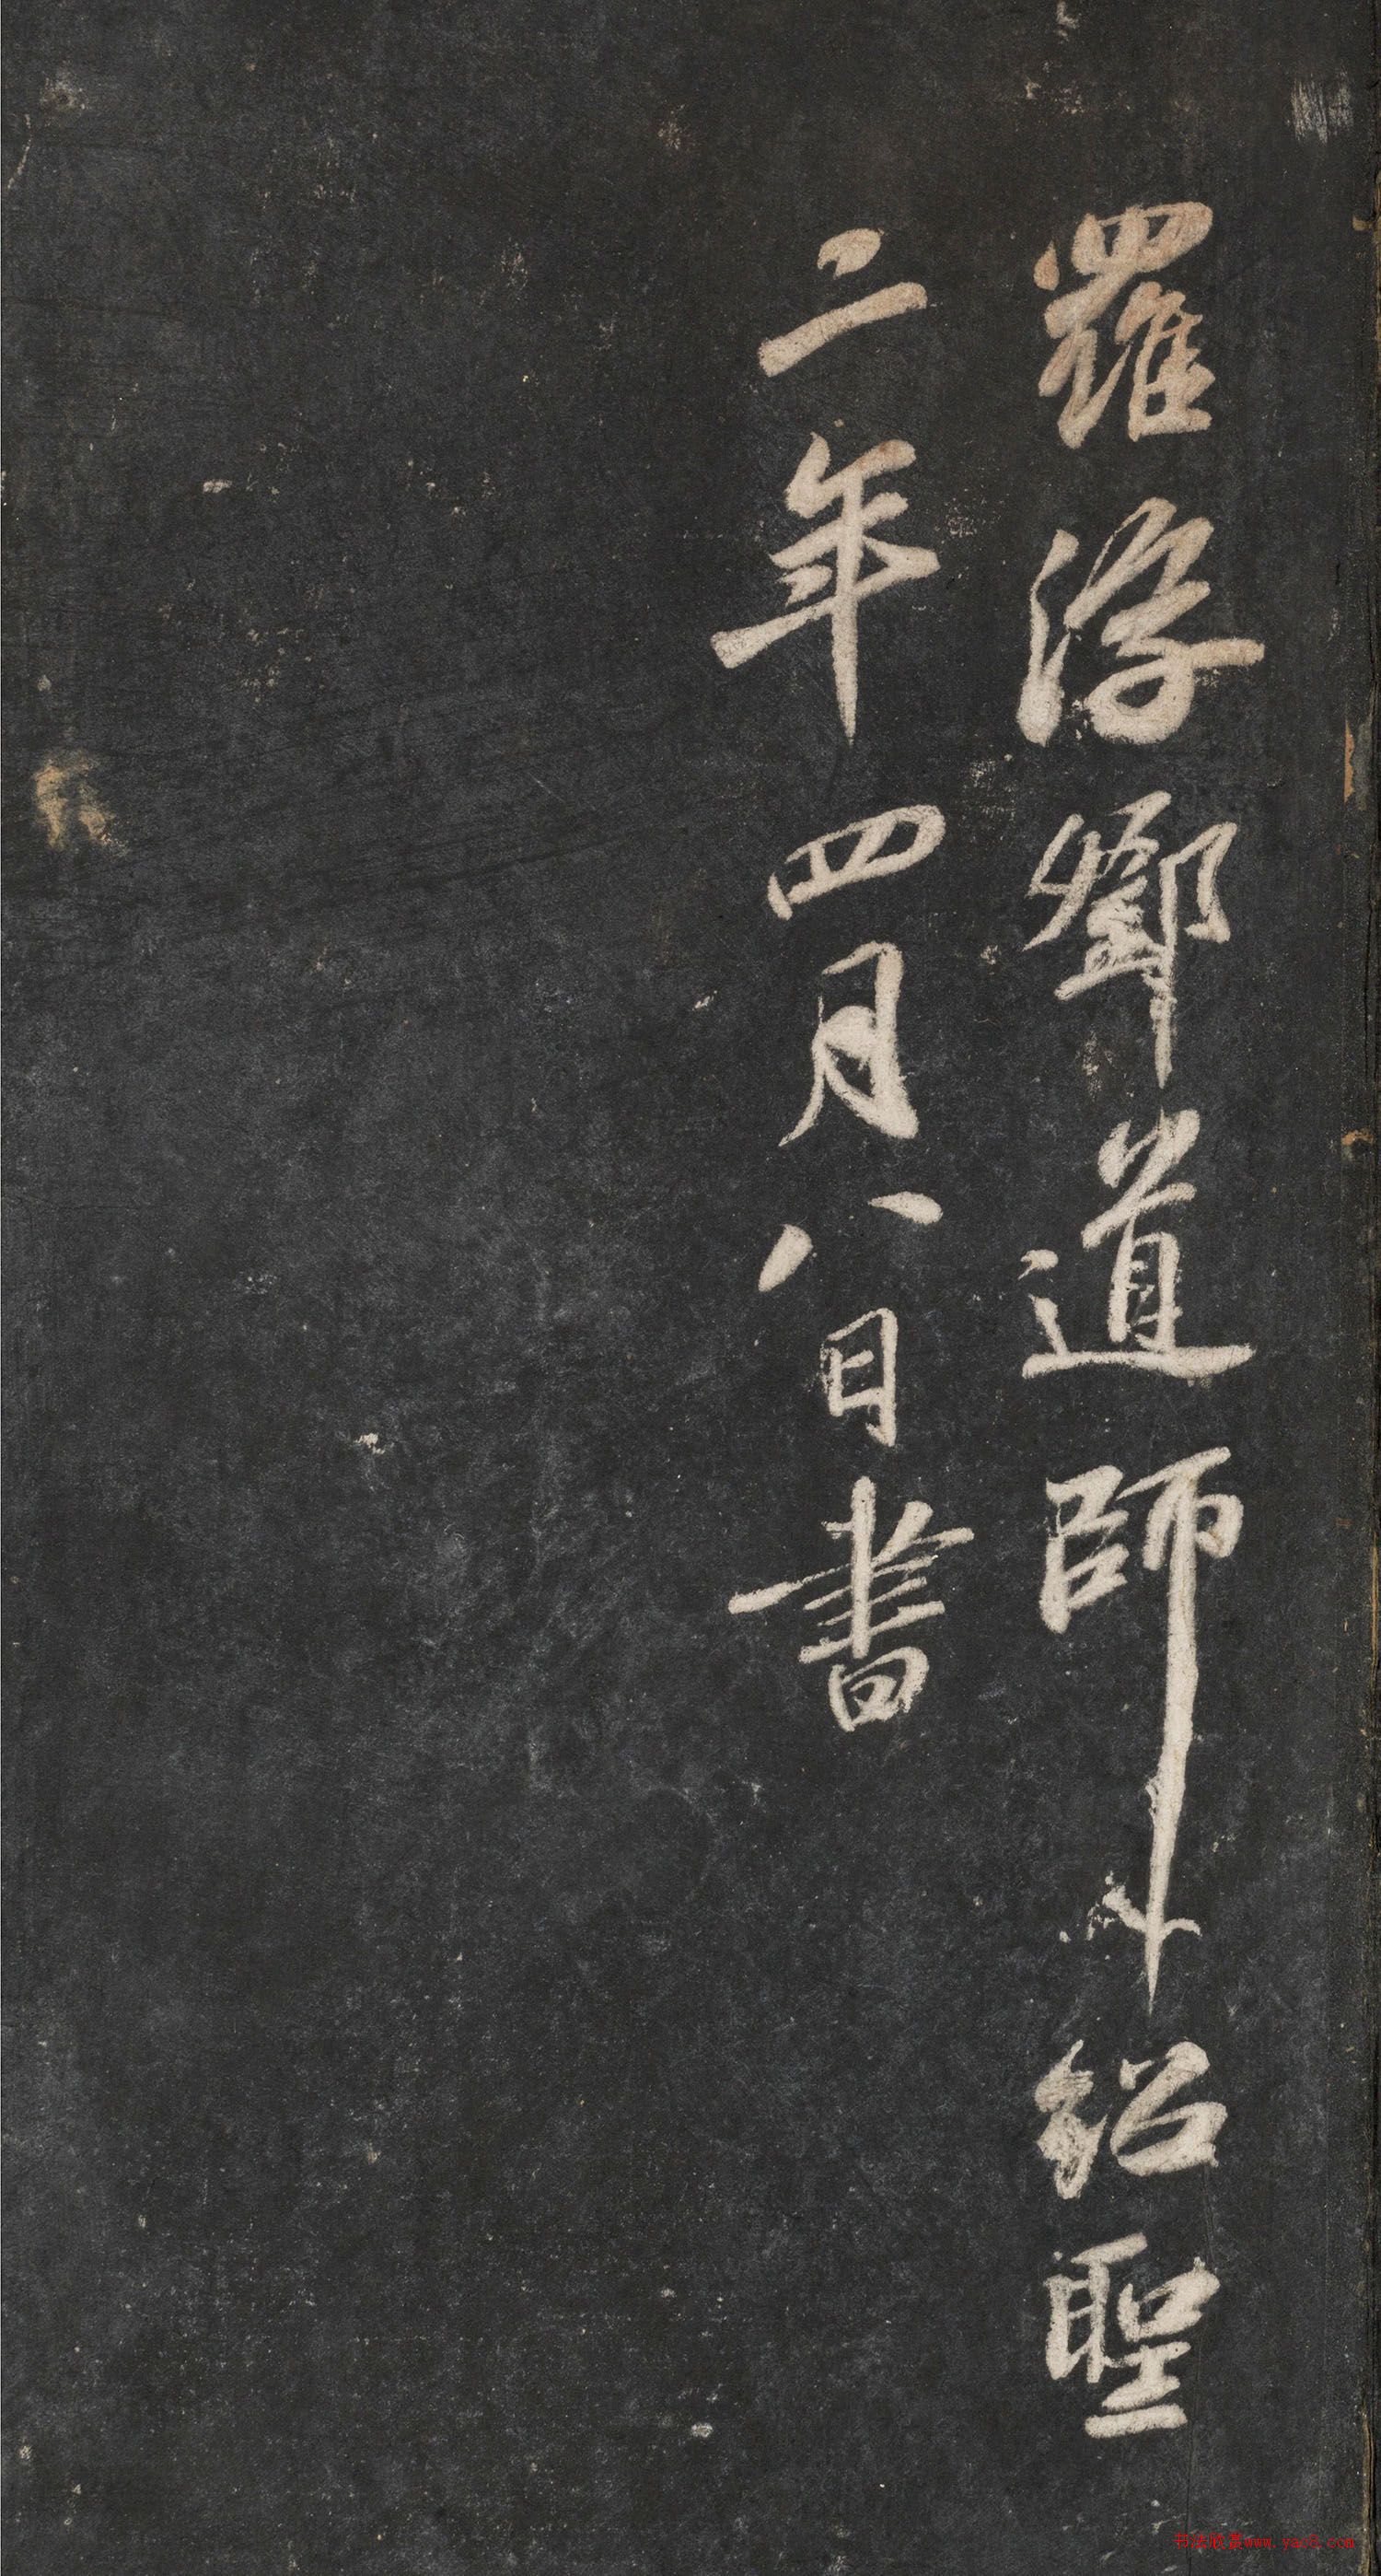 羅浮鄧道師紹聖
二年四月八日書
书法欣赏www.yac8.com